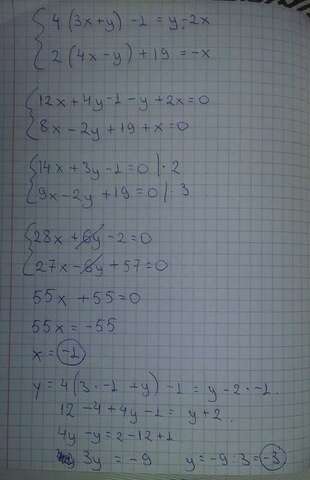 4(3x+y)-1=y-2x
2(4x-y)+19=-x
12x+4y-1-y+2x=0
8x-2y+19+x=0
14x+3y-1=0 |·2
9x-2y+19=0 |·3
28x+6y-2=0
27x-6y+57=0
55x+55=0
55x=-55
x=-1
y=4(3·-1+y)-1=y-2·-1.
12-4+4y-1=y+2.
4y-y=2-12+1
3y=-9 y=-9:3=-3